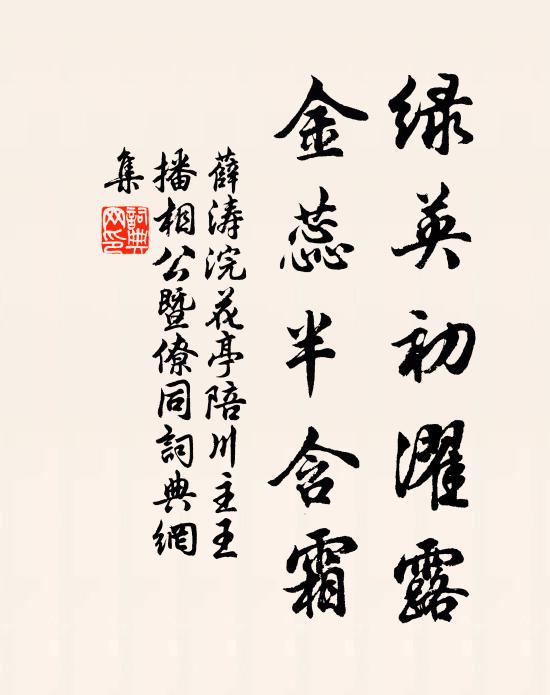 绿英初濯露
金蕊半含霜
薛涛浣花亭陪川主王
播相公暨僚同詞典網
集
詞典
网印